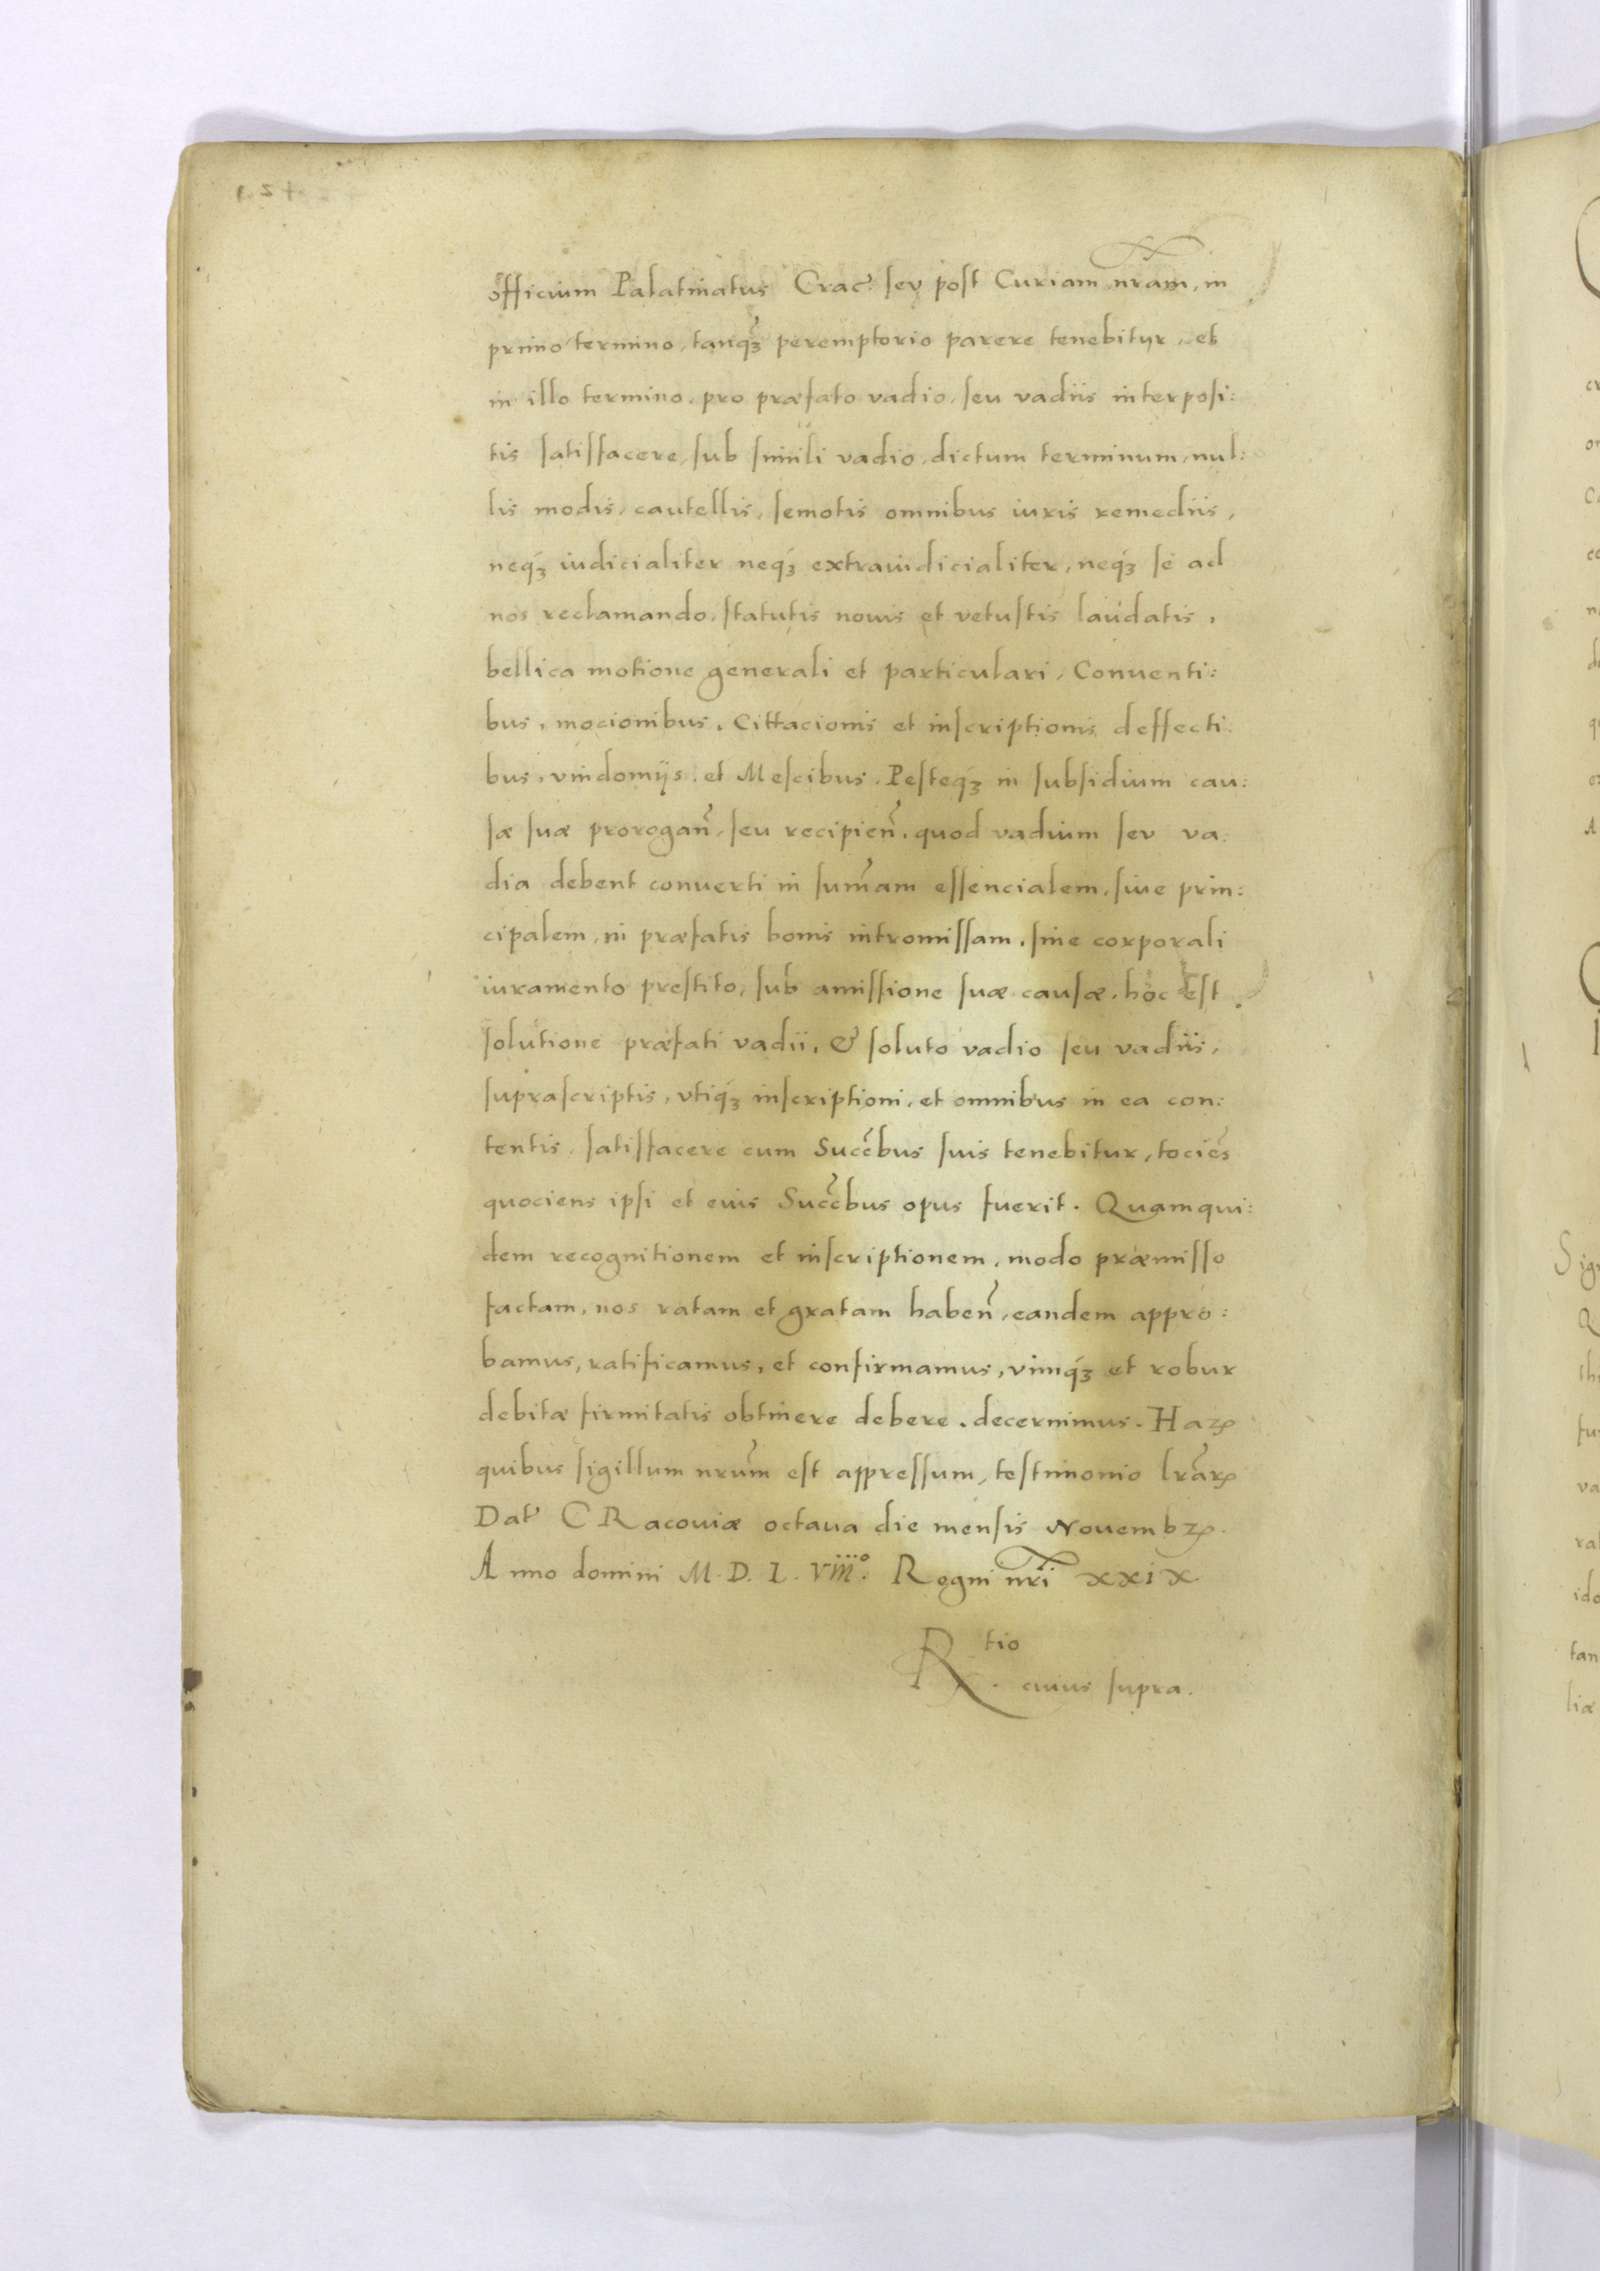 officium Palatinatus Crac̃. seu post Curiam nr̃am, in
primo termino, tanq̃ȝ peremptorio parere tenebitur, et
in illo termino, pro præfato vadio, seu vadiis interposi:
tis satisfacere, sub simili vadio, dictum terminum, nul:
lis modis, cautellis, semotis omnibus iuris remediis,
neqȝ iudicialiter neqȝ extraiudicialiter, neqȝ se ad
nos reclamando, statutis nouis et vetustis laudatis,
bellica motione generali et particulari, Conuenti:
bus, mocionibus, Cittacionis et inscriptionis deffecti:
bus, vindomijs, et Mescibus, Pesteqȝ in subsidium cau:
sæ suæ prorogañ, seu recipieñ, quod vadium seu va:
dia debent conuerti in sum̃am essencialem, siue prin:
cipalem, in præfatis bonis intromissam, sine corporali
iuramento prestito, sub amissione suæ causæ, hoc est
solutione præfati vadii, & soluto vadio seu vadiis,
suprascriptis, vtiqȝ inscriptioni, et omnibus in ea con:
tentis, satisfacere cum Succ̃bus suis tenebitur, tocies̃
quociens ipsi et eius Succ̃bus opus fuerit. Quamqui:
dem recognitionem et inscriptionem, modo præmisso
factam, nos ratam et gratam habeñ, eandem appro:
bamus, ratificamus, et confirmamus, vimqȝ et robur
debitæ firmitatis obtinere debere, decernimus. Haꝝ
quibus sigillum nr̃um est appressum, testimonio lr̃aꝝ
Dat̃ CRacouiæ octaua die mensis Nouembꝝ.
Anno domini M. D. L. Viii°. Regni nr̃i xxix
Rtio
cuius supra.